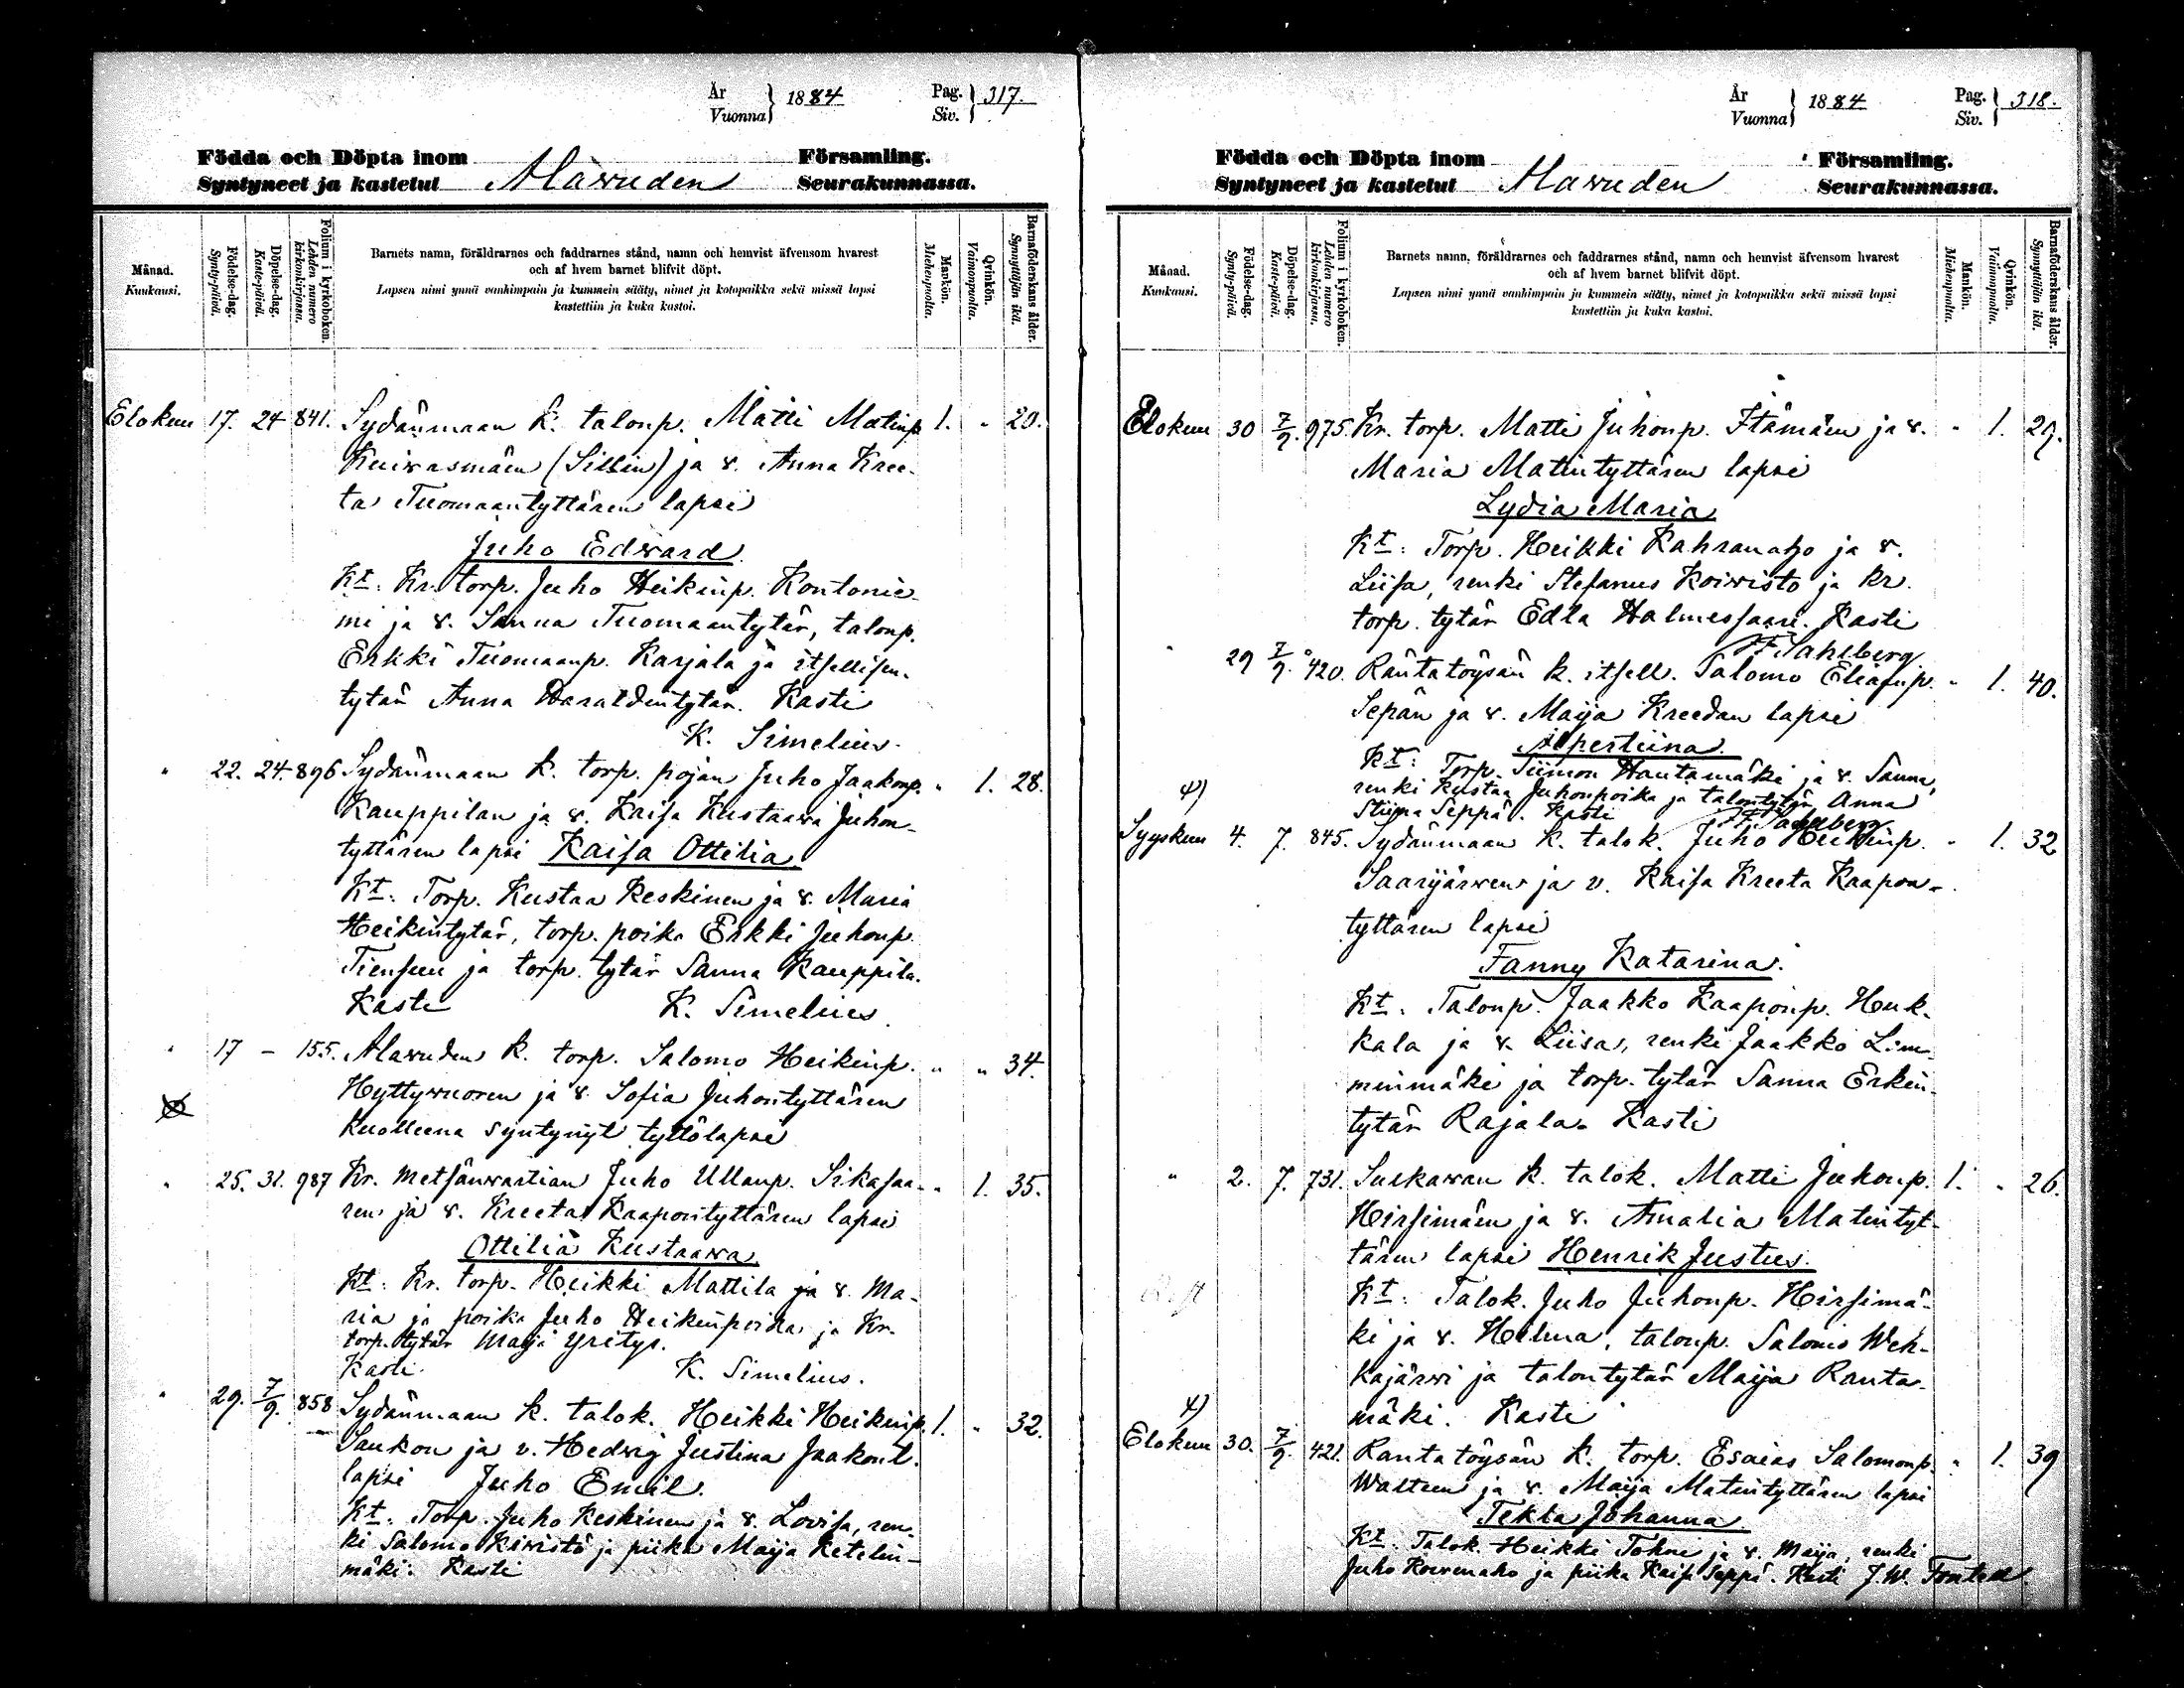 År
Vuonna
1884
Pag.
Siv.
317.
Födda och Döpta inom
Församling.
Syntyneet ja kastetut
Alawuden
Seurakunnassa.
Månad.
Kuukausi.
Födelse-dag.
Synty-päivä.
Döpelse-dag.
Kaste-päivä.
Folium i kyrkoboken.
Lehden numero
kirkonkirjassa.
Barnets namn, föräldrarnes och faddrarnes stånd, namn och hemvist äfvensom hvarest
och af hvem barnet blifvit döpt.
Lapsen nimi ynnä vanhimpain ja kummein sääty, nimet ja kotopaikka sekä missä lapsi
kastettiin ja kuka kastoi.
Mankön.
Miehenpuolta.
Qvinkön.
Vaimonpuolta.
Barnaföderskans ålder.
Synnyttäjän ikä.
Elokuu 17. 24 841. Sydänmaan k. talonp. Matti Matinp. 1. " 20.
Kuiwasmäen (Sillin) ja v. Anna Kree-
ta Tuomaantyttären lapsi
Juho Edward.
Kt: Kr. torp. Juho Heikinp. Kontonie-
mi ja v. Sanna Tuomaantytär, talonp.
Erkki Tuomaanp. Karjala ja itsellisen-
tytär Anna Haraldintytär. Kasti
K. Simelius.
" 22. 24. 896 Sydänmaan k. torp. pojan Juho Jaakonp. " 1. 28.
Kauppilan ja v. Kaisa Kustaawa Juhon-
tyttären lapsi Kaisa Ottilia.
Kt: Torp. Kustaa Keskinen ja v. Maria
Heikintytär, torp. poika Erkki Juhonp.
Tiensuu ja torp. tytär Sanna Kauppila.
Kasti K. Simelius.
" 17 – 155. Alawuden k. torp. Salomo Heikinp. " " 34.
Hyttywuoren ja v. Sofia Juhontyttären
Kuolleena syntynyt tyttölapsi
" 25. 31. 987 Kr. metsänwartian Juho Ullanp. Sikasaa- " 1. 35.
ren ja v. Kreeta Kaapontyttären lapsi
Ottilia Kustaawa.
Kt: Kr. torp. Heikki Mattila ja v. Ma-
ria ja poika Juho Heikinpoika ja Kr.
torp. tytär Maija Yritys.
Kasti K. Simelius.
" 29. 7/9. 858 Sydänmaan k. talok. Heikki Heikinp. 1. " 32.
Saukon ja v. Hedwig Justina Jaakont.
lapsi Juho Emil.
Kt: Torp. Juho Keskinen ja v. Lovisa, ren-
ki Salomo Kiwistö ja piika Maija Ketelin-
mäki. Kasti
År
Vuonna
1884
Pag.
Siv.
318.
Födda och Döpta inom
Församling.
Syntyneet ja kastetut
Alawuden
Seurakunnassa.
Månad.
Kuukausi.
Födelse-dag.
Synty-päivä.
Döpelse-dag.
Kaste-päivä.
Folium i kyrkoboken.
Lehden numero
kirkonkirjassa.
Barnets namn, föräldrarnes och faddrarnes stånd, namn och hemvist äfvensom hvarest
och af hvem barnet blifvit döpt.
Lapsen nimi ynnä vanhimpain ja kummein sääty, nimet ja kotopaikka sekä missä lapsi
kastettiin ja kuka kastoi.
Mankön.
Miehenpuolta.
Qvinkön.
Vaimonpuolta.
Barnaföderskans ålder.
Synnyttäjän ikä.
Elokuu 30 7/9. 975. Kr. torp. Matti Juhonp. Itämäen ja v. " 1. 29.
Maria Matintyttären lapsi
Lydia Maria
Kt: Torp. Heikki Kahranaho ja v.
Liisa, renki Stefanus Koiwisto ja kr.
torp. tytär Edla Halmessaari. Kasti
Sahlberg
" 29 7/9. 420. Rantatöysän k. itsell. Salomo Eliaanp. " 1. 40.
Sepän ja v. Maija Kreedan lapsi
Alpertiina.
Kt: Torp. Siimon Hautamäki ja v. Sanna,
renki Kustaa Juhonpoika ja talontytär Anna
Stiina Seppä. Kasti
Sahlberg
4)
Syyskuu 4. 7. 845. Sydänmaan k. talok. Juho Heikinp. " 1. 32
Saarijärwen ja v. Kaisa Kreeta Kaapon-
tyttären lapsi
Fanny Katarina.
Kt: Talonp. Jaakko Kaaponp. Huk-
kala ja v. Liisa, renki Jaakko Lim-
minmäki ja torp. tytär Sanna Erkin-
tytär Rajala. Kasti
" 2. 7. 731. Sulkawan k. talok. Matti Juhonp. 1. " 26.
Hirsimäen ja v. Amalia Matintyt-
tären lapsi Henrik Justus.
Kt: Talok. Juho Juhonp. Hirsimä-
ki ja v. Helena, talonp. Salomo Weh-
kajärwi ja talontytär Maija Ranta-
mäki. Kasti
4)
Elokuu 30. 7/9. 421. Rantatöysän k. torp. Esaias Salomonp. " 1. 39
Waltteen ja v. Maija Matintyttären lapsi
Tekla Johanna.
Kt: Talok. Heikki Tohni ja v. Maija, renki
Juho ja piika Kaisa Seppä. Kasti J. W.